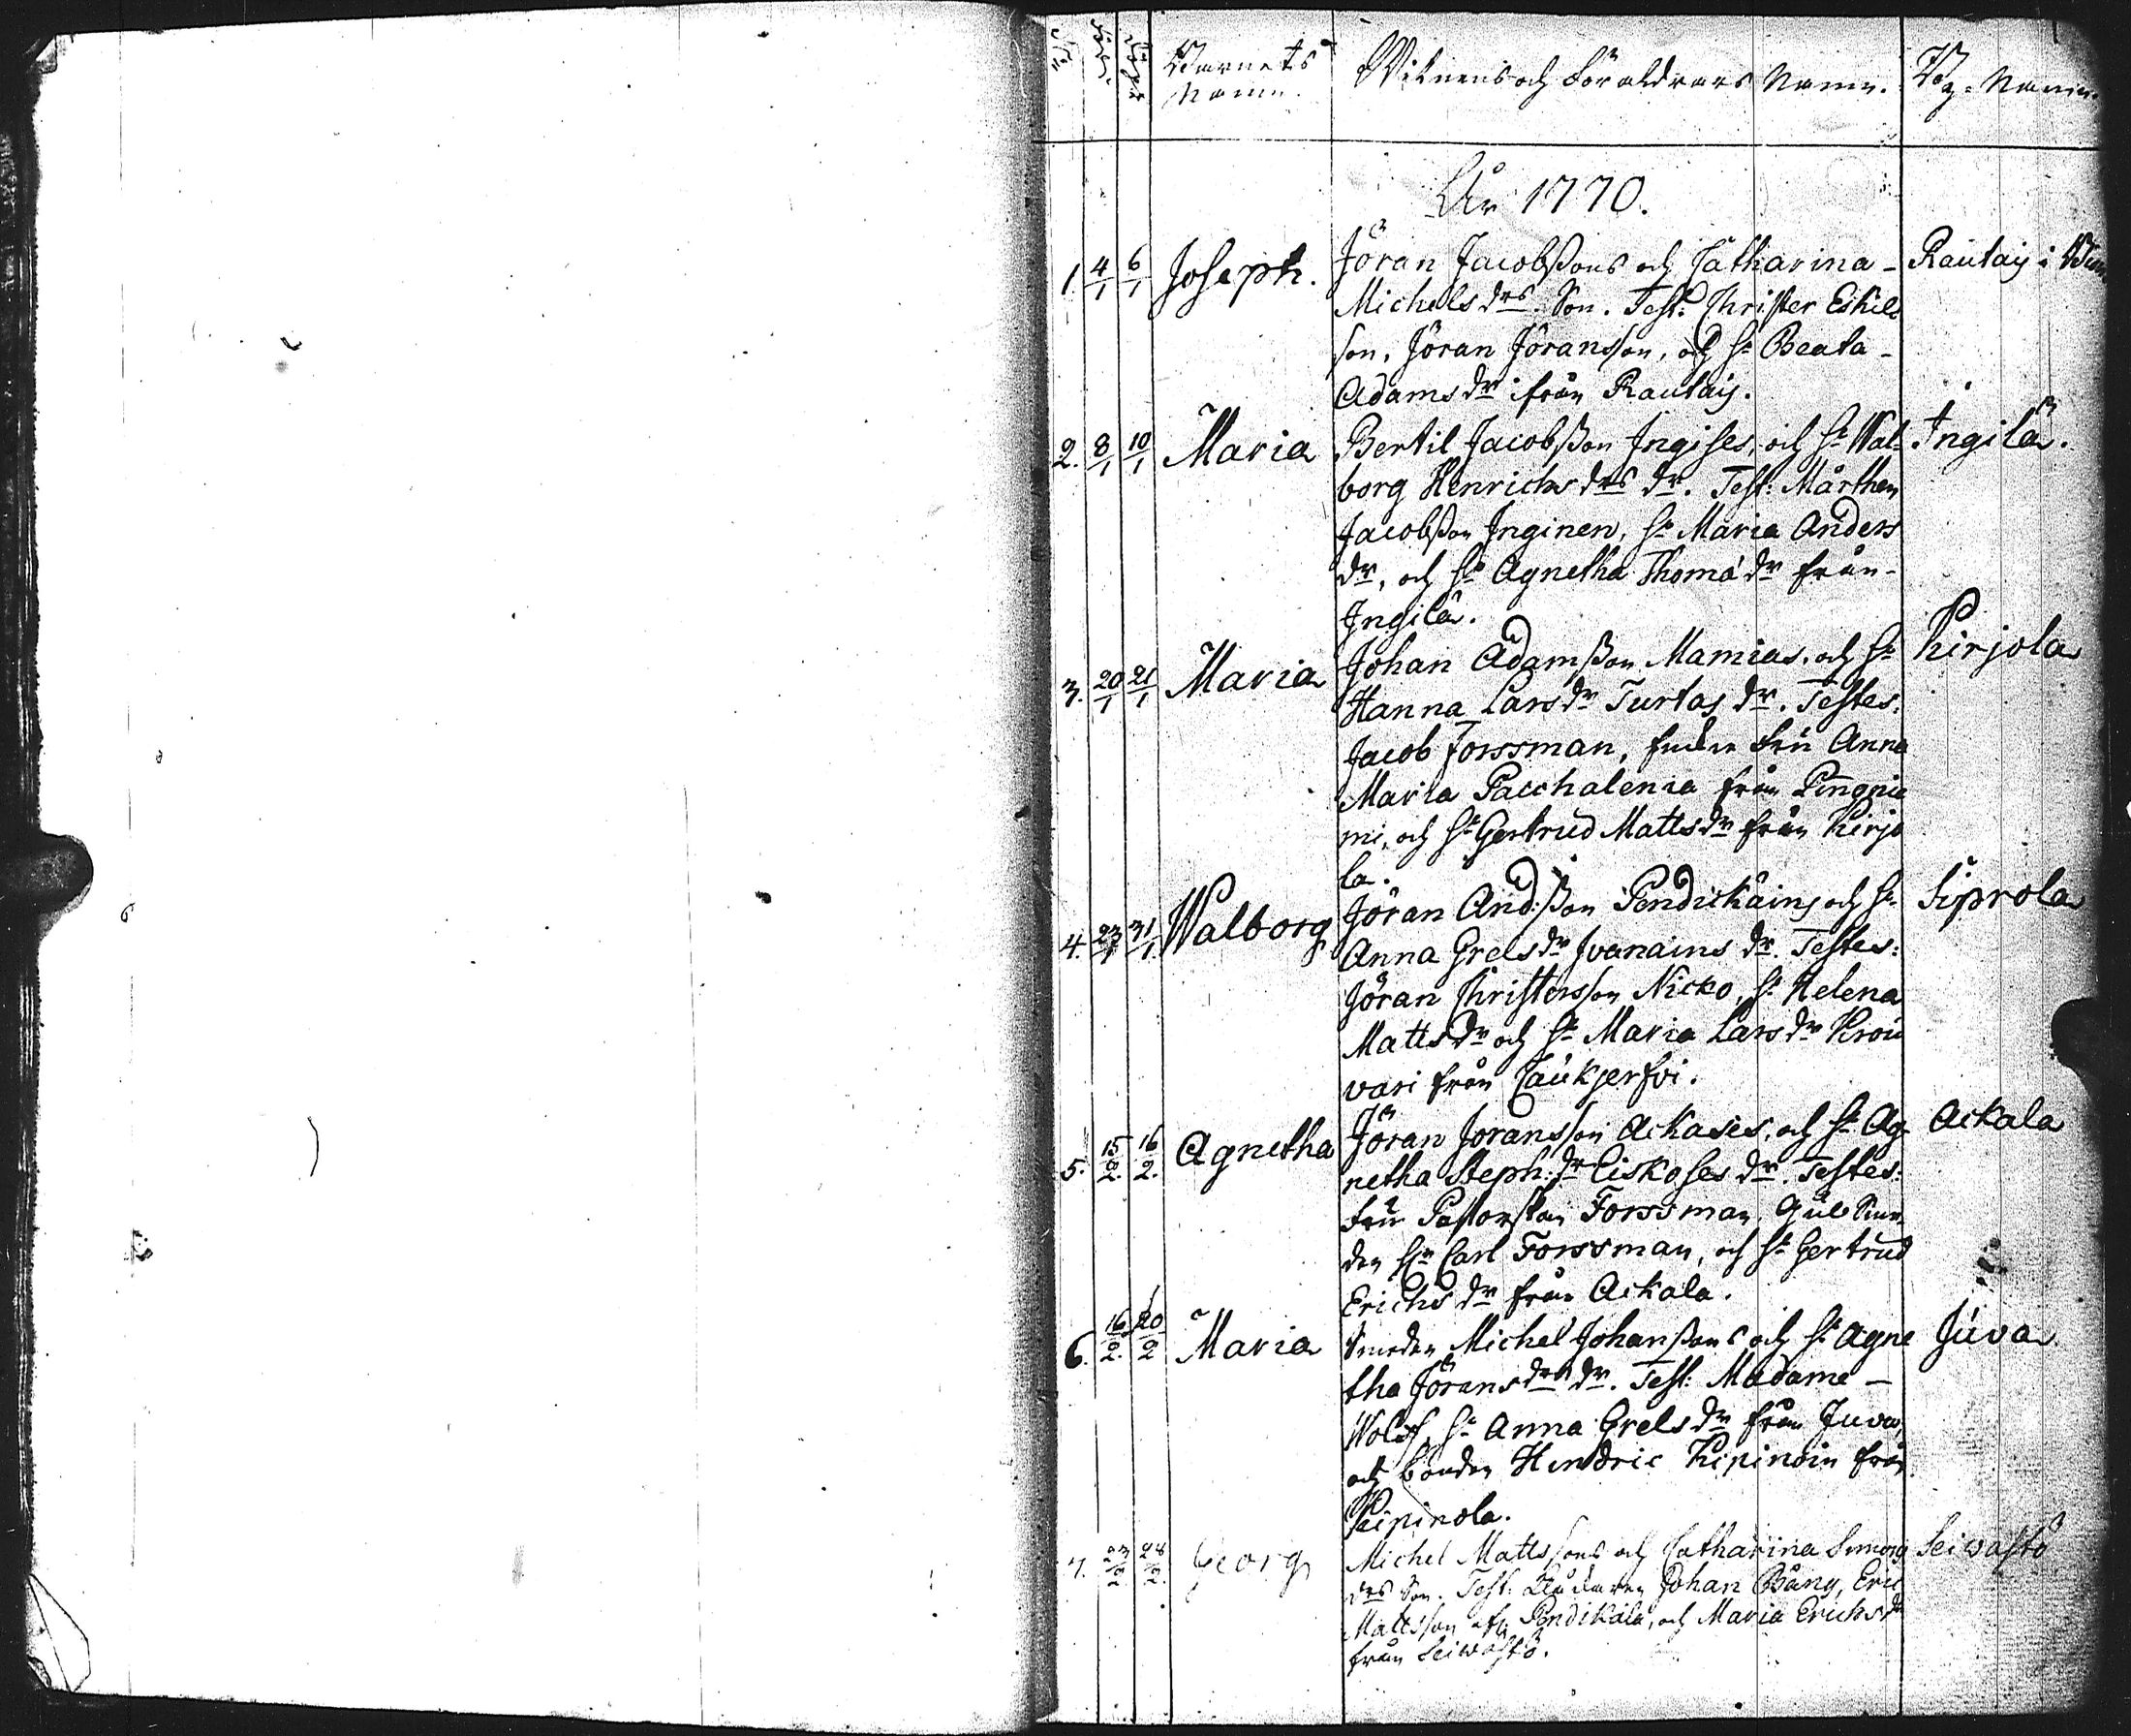 No Född Döpt Barnets Namn. Witnens och Föräldrars Namn. By-Namn.
År 1770.
1. 4/1 6/1 Joseph. Jöran Jacobssons och Catharina Rautaij i
Michelsdrs Son. Test: Christer Eskils
son, Jöran Jöransson, och H. Beata
Adamsdr ifrån Rautaij.
2. 8/1 10/1 Maria Bertil Jacobsson Ingises, och H. Wal- Ingilä.
borg Henrichsdrs dr. Test: Mårthen
Jacobsson Inginen, H. Maria Anders
dr, och H. Agnetha Thomædr från
Ingilä.
3. 20/1 21/1 Maria Johan Adamsson Mamias, och H. Kirjola
Hanna Larsdr Turtas dr. Testes:
Jacob Forssman, Fru Anna
Maria Paschalenia från Pingnie
mi, och H. Gertrud Mattsdr från Kirjo
la.
4. 23/1 31/1 Walborg Jöran And:sson Pendickäins och H. Siprola
Anna Grelsdr Ivanains dr. Testes:
Jöran Christersson Nicko, H. Helena
Mattsdr och H. Maria Larsdr Kroü
wari från Caukjerfvi.
5. 15/2. 16/2. Agnetha Jöran Joransson Ackases, och H. Ag- Ackala
netha Steph:dr Eiskoses dr. Testes:
Fru Pastorskan Forssman, Gul Sme
den Hr Carl Forssman, och H. Gertrud
Erichsdr från Ackala.
6. 16/2. 20/2 Maria Smeden Michel Johanssons och H. Agne Juva
tha Jöransdrs dr. Test: Madame
Wolff, H. Anna Grelsdr från Juva,
och bonden Hendric Kipinoin från
Kipinola.
7. 23/2 28/2. Georg Michel Mattssons och Catharina Simons Seiwastö
drs Son. Test: Johan Bång, Eric
Mattsson ifr. Pendikälä, och Maria Erichsdr
från Seiwästö.